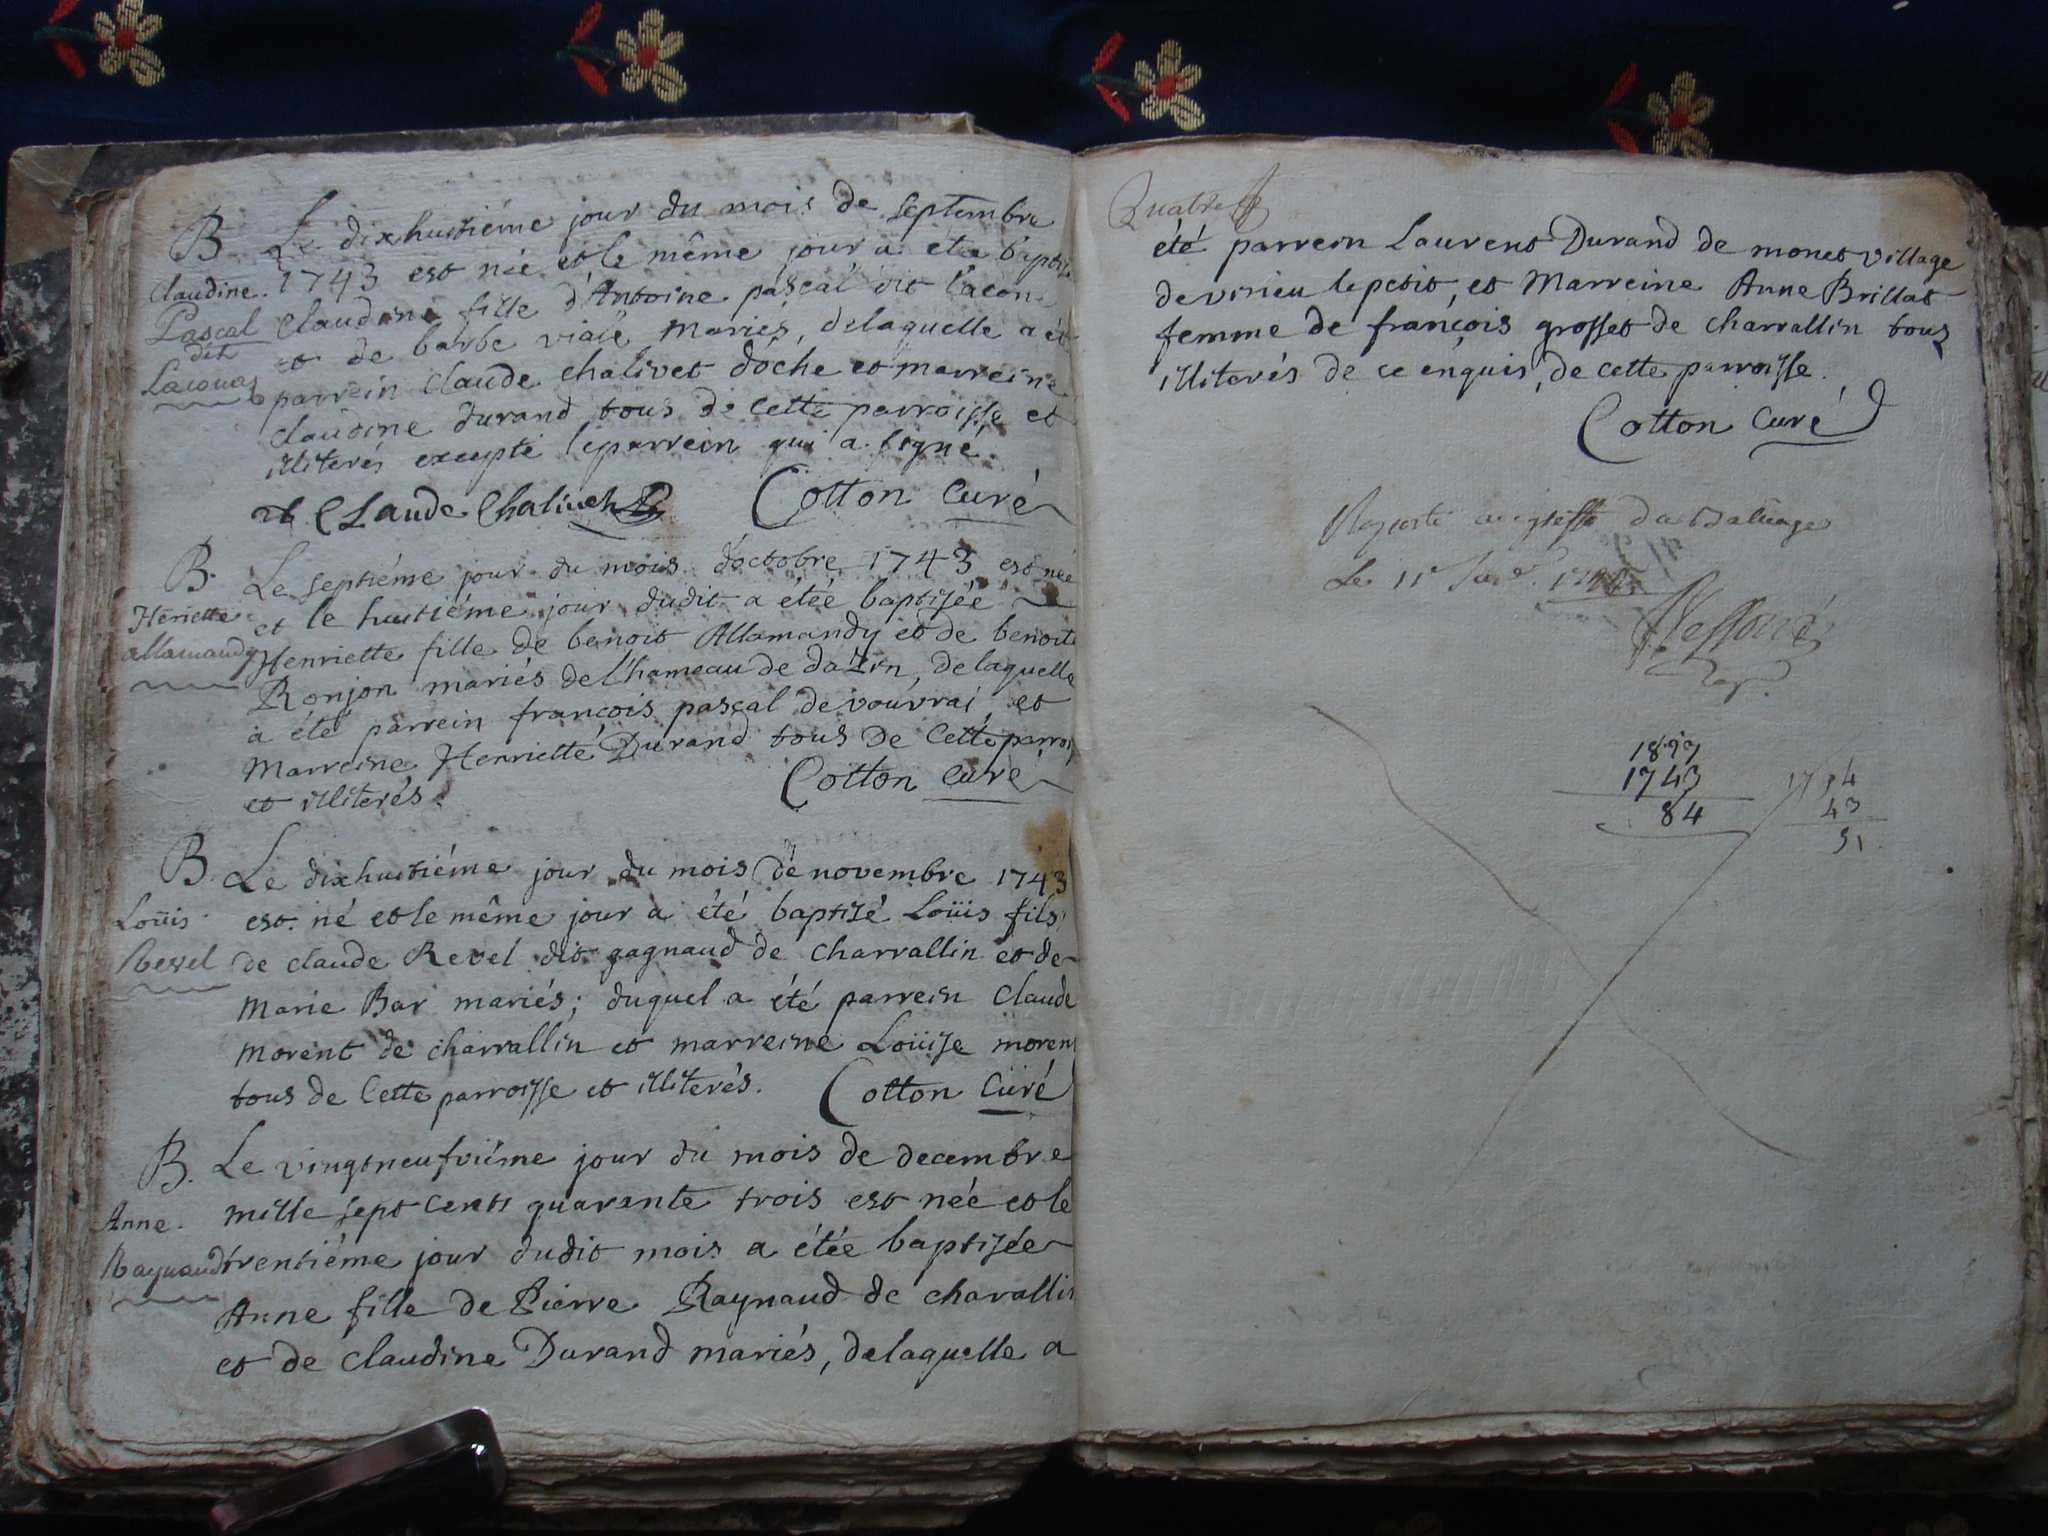 B. Le dixhuitiéme jour du mois de septembre
Claudine. 1743 est née et le même jour a eté baptisé
Pascal Claudine fille d'Antoine pascal dit lacon
dit
et de barbe viale mariés, delaquelle a été
Laconas
parrein Claude chalivet doche et marreine
claudine durand tous de cette parroisse et
illiterés excepté leparrein qui a signé.
Claude Chalivet Cotton Curé
B. Le septiéme jour du mois d'octobre 1743 est née
Heriette et le huitiéme jour dudit a etée baptisée
allamandy Henriette fille de benoit Allamandy et de benoite
Ronjon mariés de l'hameau de dazin, delaquelle
à été parrein françois pascal de vouvrai, et
Marreine Henriette Durand tous de Cette parrois
et illiterés. Cotton Curé
B. Le dixhuitiéme jour du mois de novembre 1743
Loüis est né et le même jour a été baptisé Loüis fils
Revel de claude Revel dit gagnaud de charvallin et de
Marie Bar mariés; duquel a été parrein Claude
morent de charvallin et marreine Loüise moren
tous de Cette parroisse et illiterés. Cotton Curé
B. Le vingtneufviéme jour du mois de decembre
Anne. mille sept cents quarante trois est née et le
Raynaud trentiéme jour dudit mois a étée baptisée
Anne fille de Pierre Raynaud de charvallin
et de Claudine Durand mariés, delaquelle a
Quatre
été parrein Laurent Durand de monet village
de virieu le petit, et Marreine Anne Brillat
femme de françois grosset de charvallin tous
illiterés de ce enquis, de cette parroisse.
Cotton Curé
au greffe du Baliage
Le 11e
1827
1743
84
1794
43
51